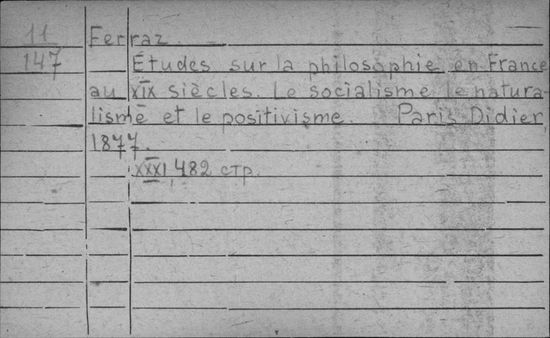 11 Ferraz.
147 Études sur la philosophie en France
au XIX siècles. Le socialisme le natura-
lisme et le positivisme. Paris Didier,
1877.
XXXI, 482 стр.